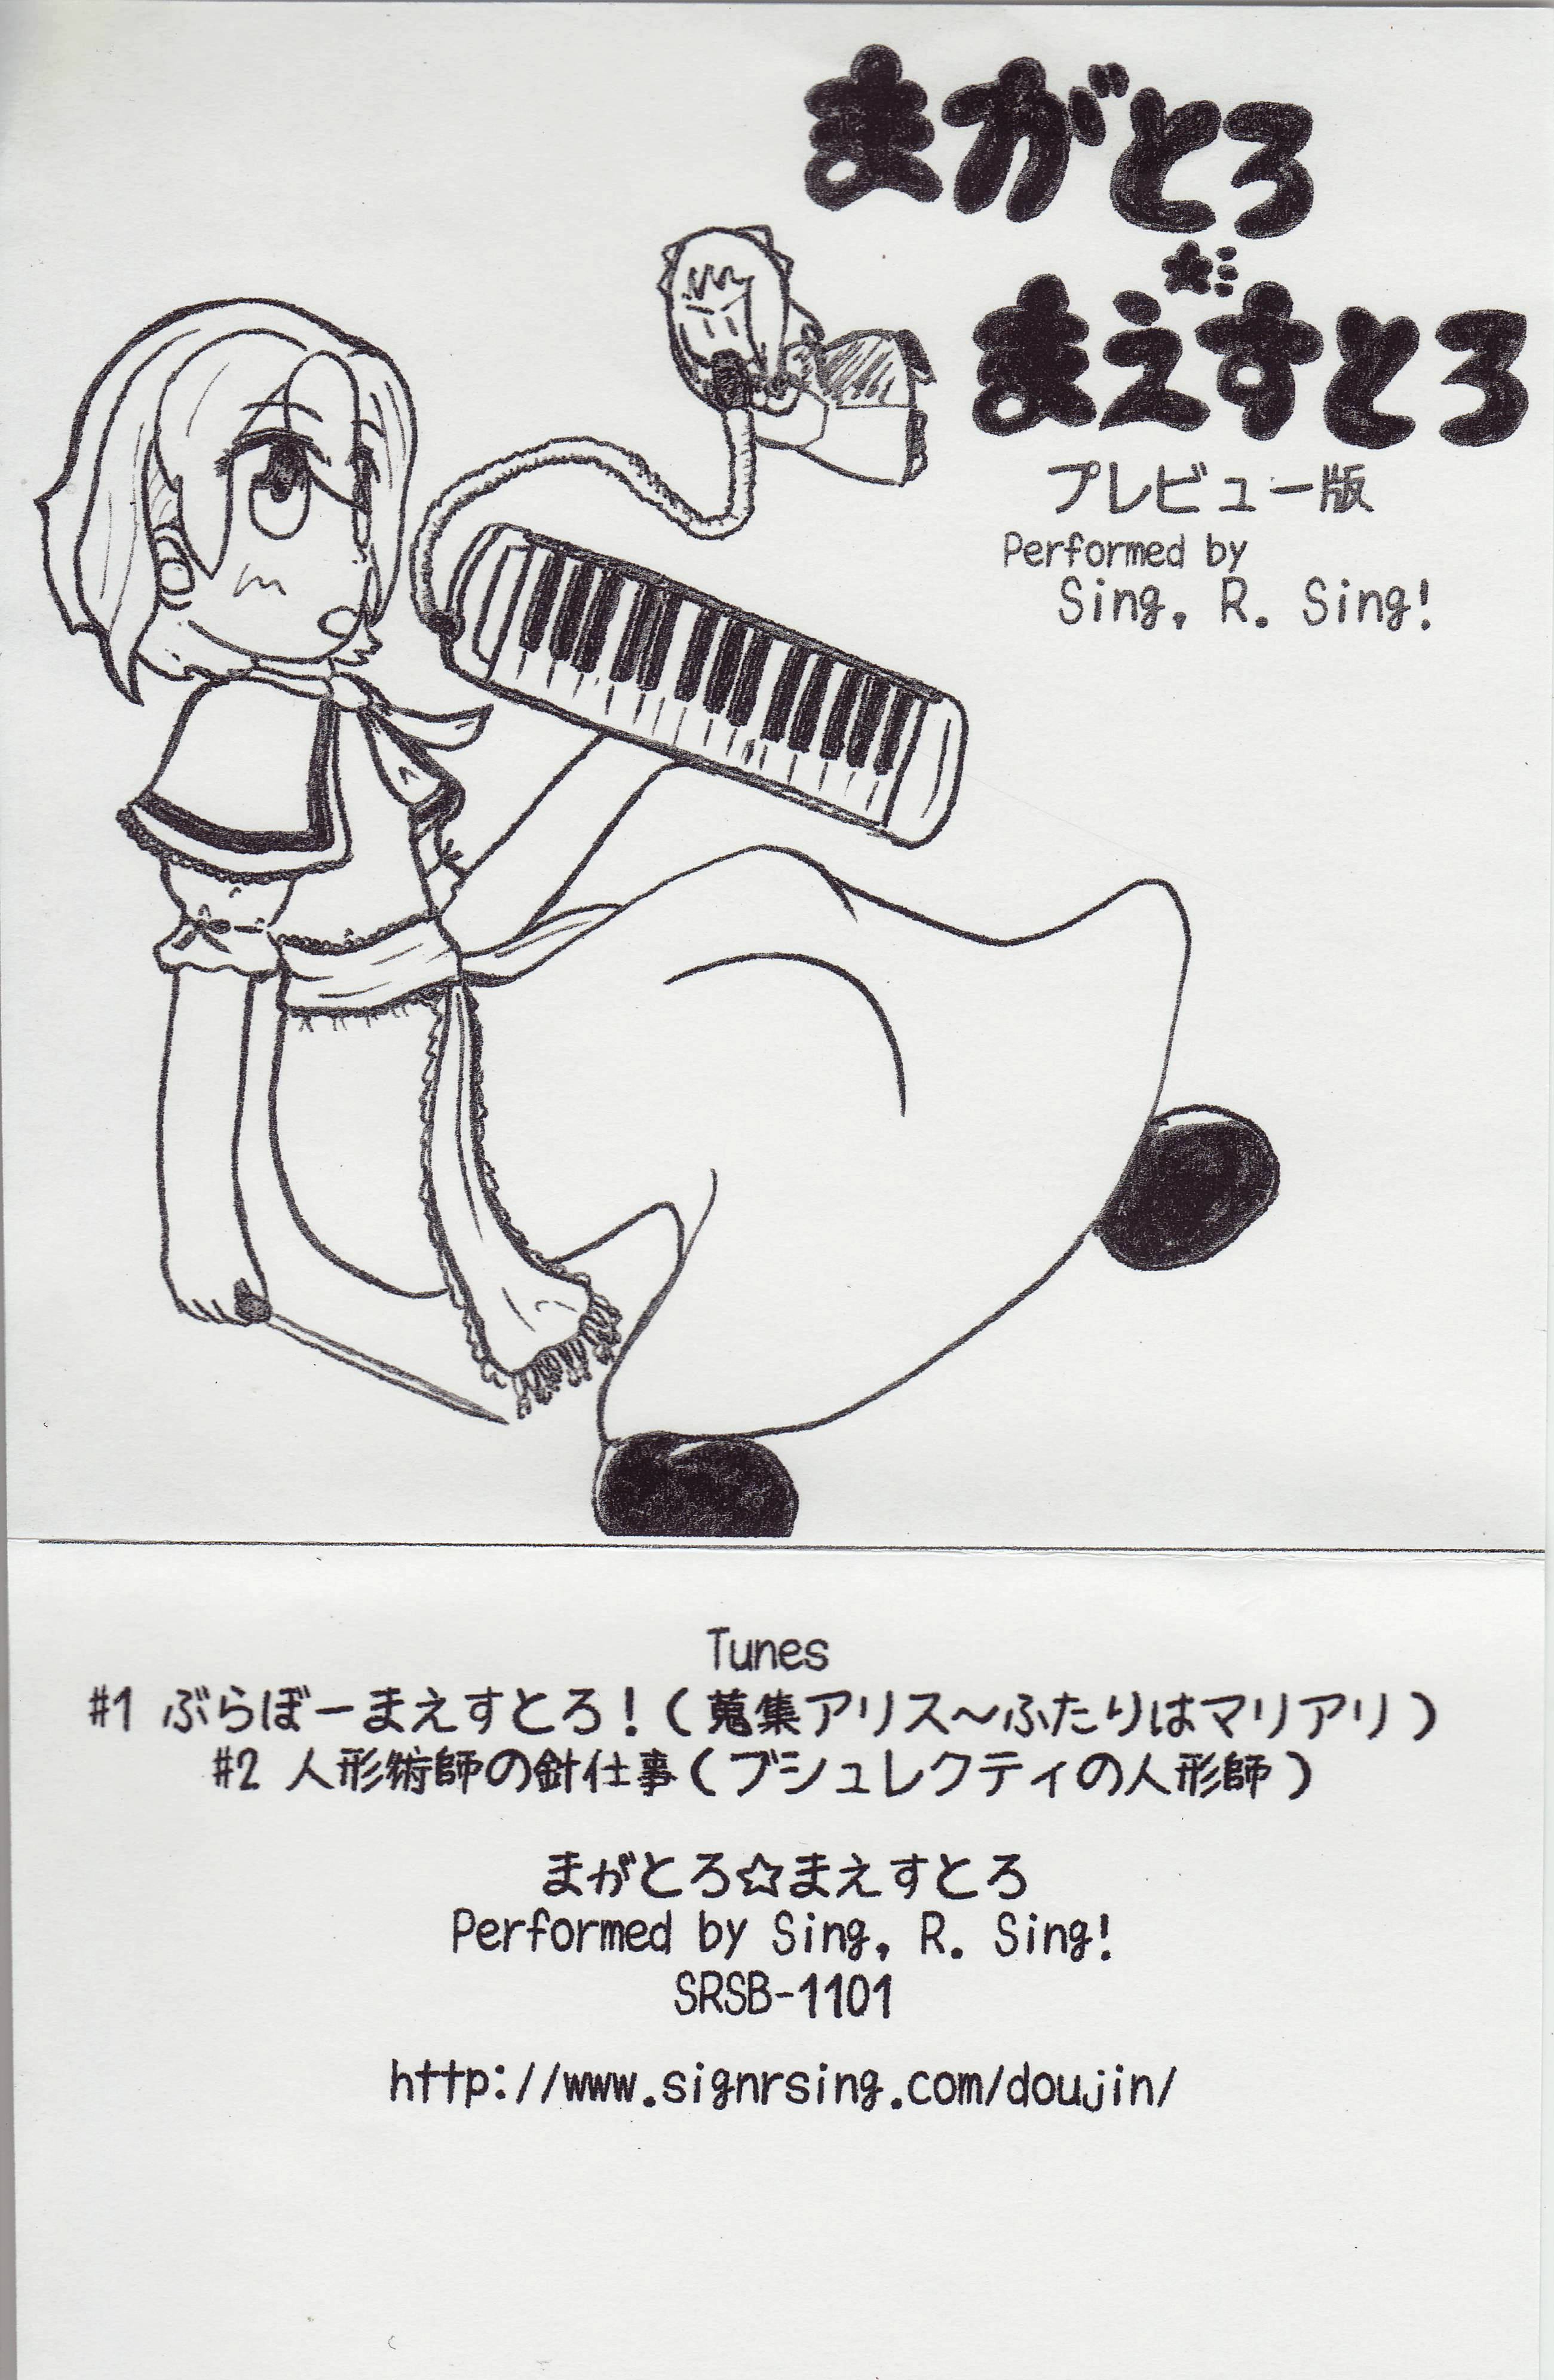 まがとろ
★
まえすとろ
プレビュー版
Performed by
Sing, R. Sing!
Tunes
#1 ぶらぼーまえすとろ!(蒐集アリス～ふたりはマリアリ)
#2 人形術師の針仕事(ブシュレクティの人形師)
まがとろ☆まえすとろ
Performed by Sing, R. Sing!
SRSB-1101
http://www.signrsing.com/doujin/